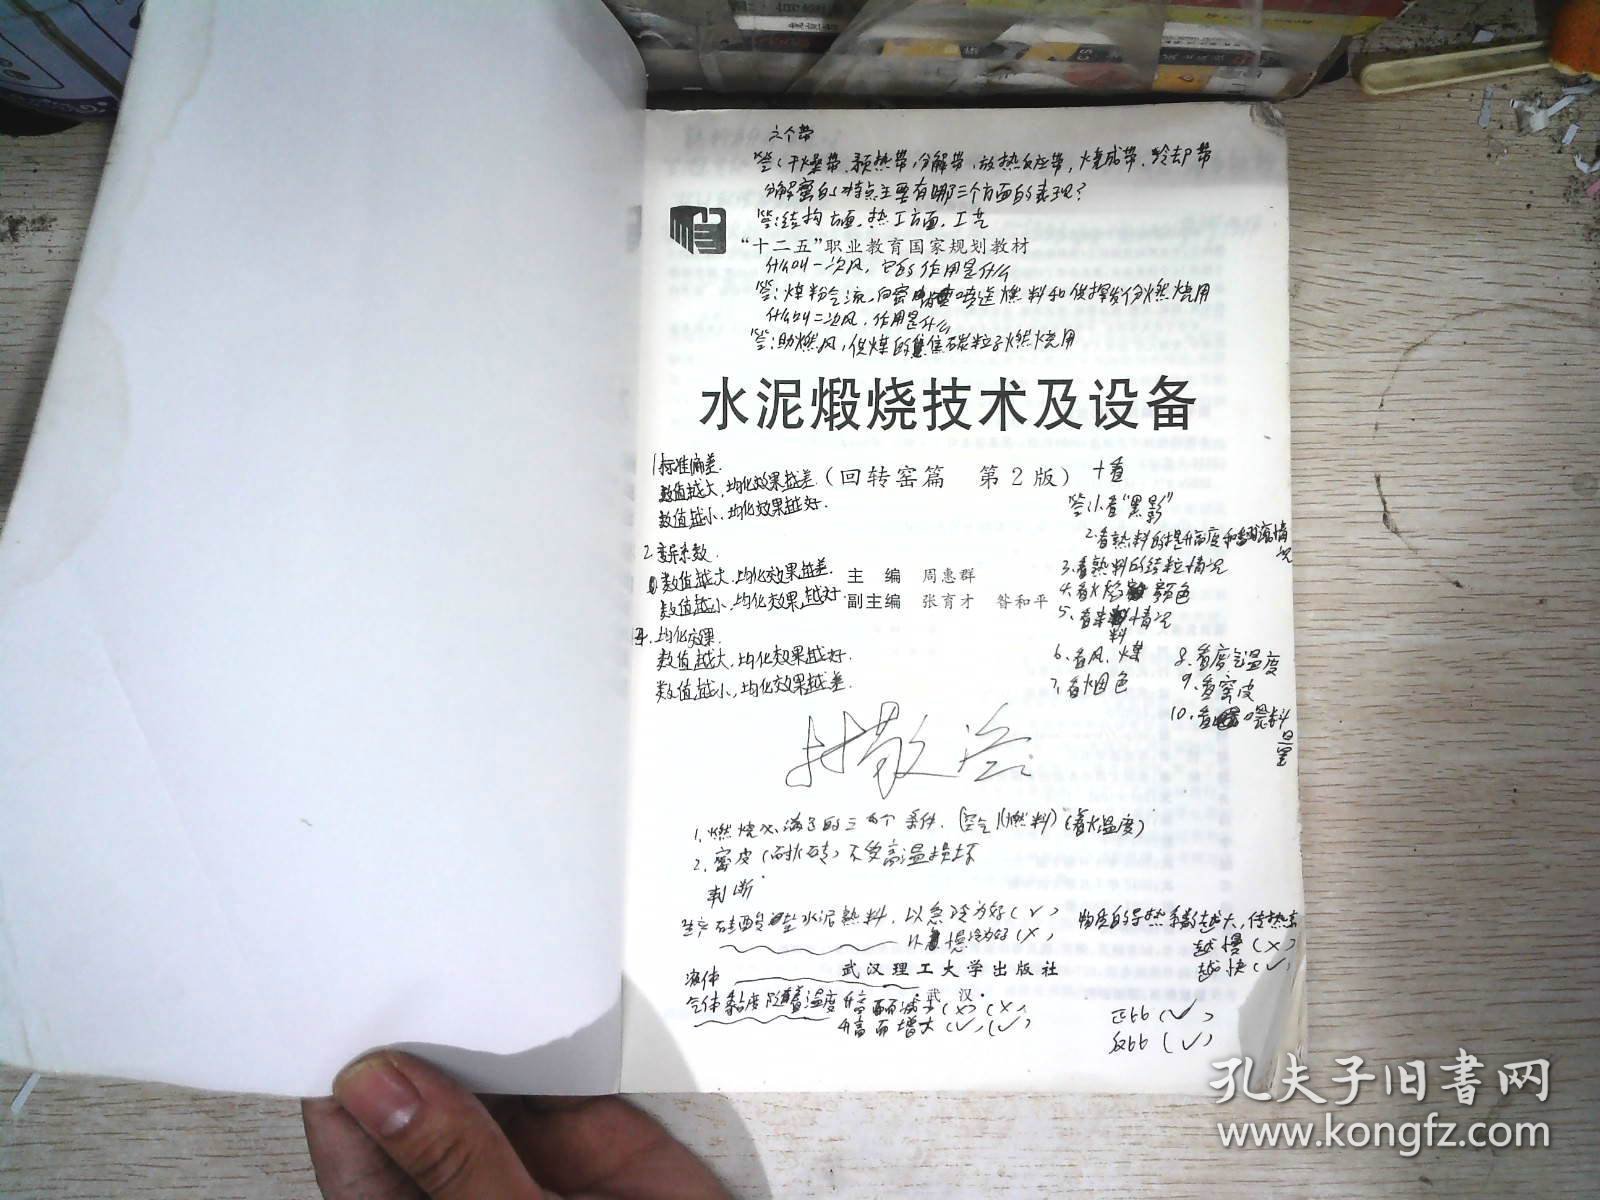 六个带
答:干燥带、预热带,分解带,放热反应带,烧成带、冷却带
分解窑的特点主要有哪三个方面的表现?
答:结构方面,热工方面,工艺
“十二五”职业教育国家规划教材
什么叫一次风,它的作用是什么
答:煤粉气流,向窑内喷送燃料和供挥发份燃烧用
什么叫二次风,作用是什么
答:助燃风,供煤的焦碳粒子燃烧用
水泥煅烧技术及设备
(回转窑篇 第2版)
1标准偏差.
数值越大,均化效果越差.
数值越小,均化效果越好.
2.变异系数.
数值越大,均化效果越差.
数值越小,均化效果越好.
均化效果.
数值越大,均化效果越好.
数值越小,均化效果越差.
主 编 周惠群
副主编 张育才 昝和平
十看
答1.看“黑影”
2.看熟料的提升高度和翻滚情况
3.看熟料的结粒情况
4.看火焰颜色
5.看来料情况
6.看风、煤
7.看烟色
8.看废气温度
9.看窑皮
10.看喂料量
1.燃烧 满足的三个条件.(空气)(燃料)(着火温度)
2.窑皮(耐火砖)不受高温损坏
判断
生产硅酸盐水泥熟料,以急冷为好(✓)
以慢冷为好(×)
物质的导热系数越大,传热
越慢(×)
越快(✓)
液体
武汉理工大学出版社
·武 汉·
气体黏度随着温度升高而减小(×)(×)
升高而增大(✓)(✓)
正比(✓)
反比(✓)
孔夫子旧书网
www.kongfz.com